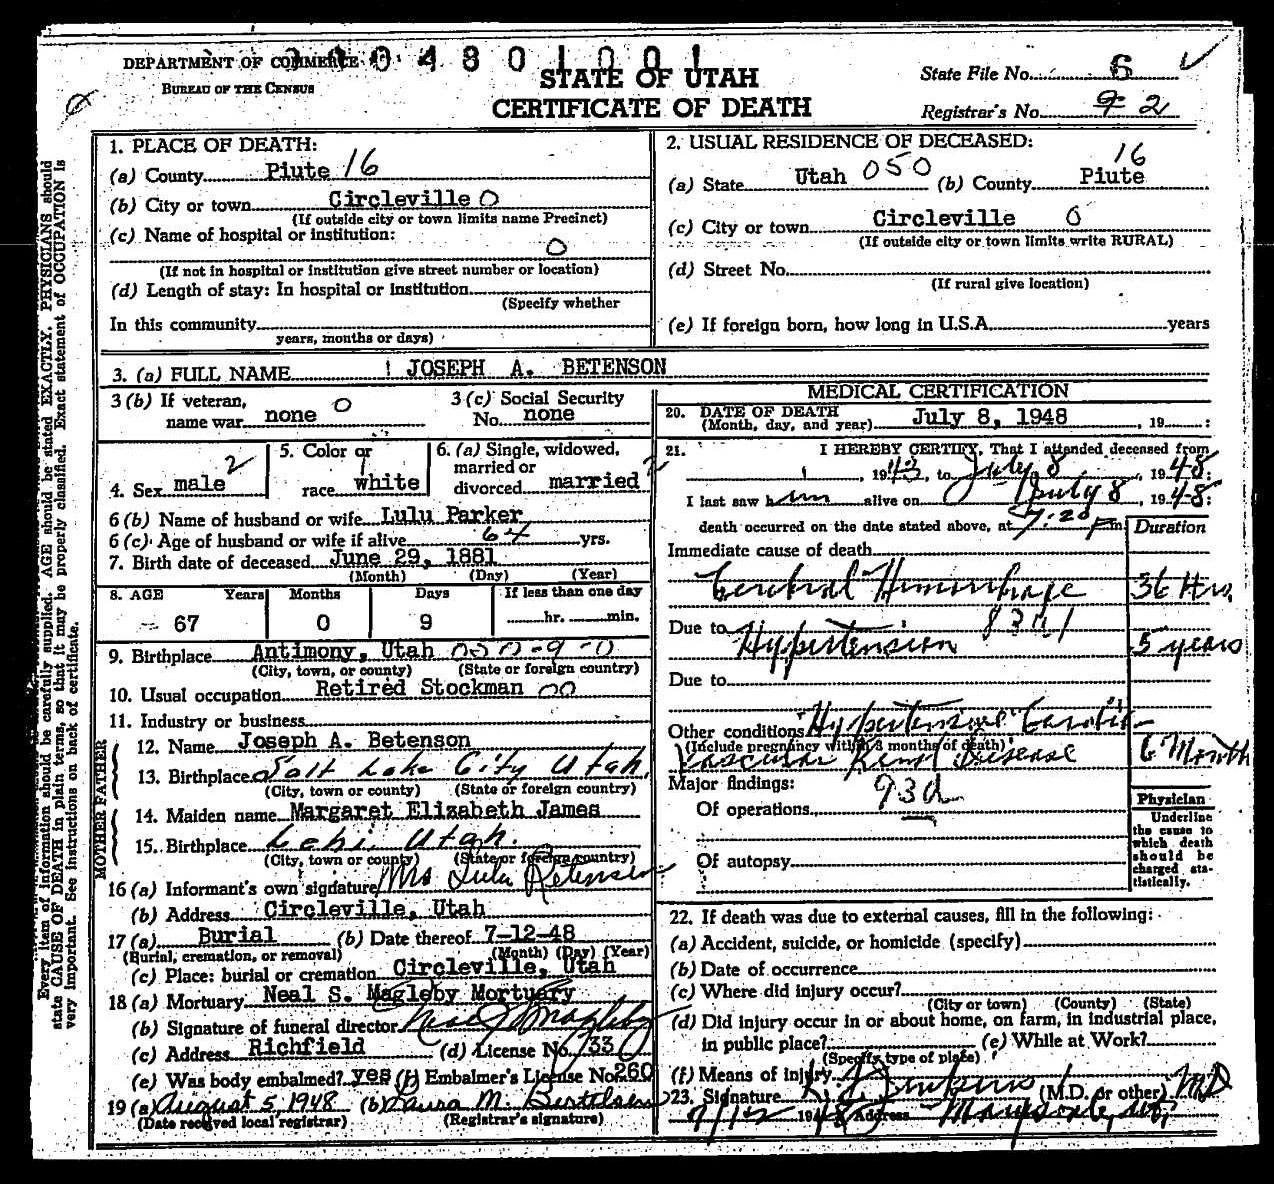 DEPARTMENT OF COMMERCE
BUREAU OF THE CENSUS
4 8 0 1 0 0 1
STATE OF UTAH
CERTIFICATE OF DEATH
State File No. 6
Registrar's No. 9 2
Every item of information should be carefully supplied. AGE should be stated EXACTLY. PHYSICIANS should
state CAUSE OF DEATH in plain terms, so that it may be properly classified. Exact statement of OCCUPATION is
very important. See instructions on back of certificate.
1. PLACE OF DEATH:
(a) County Piute 16
(b) City or town Circleville 0
(If outside city or town limits name Precinct)
(c) Name of hospital or institution:
0
(If not in hospital or institution give street number or location)
(d) Length of stay: In hospital or institution
(Specify whether
In this community
years, months or days)
2. USUAL RESIDENCE OF DECEASED:
16
(a) State Utah 050 (b) County Piute
(c) City or town Circleville 0
(If outside city or town limits write RURAL)
(d) Street No.
(If rural give location)
(e) If foreign born, how long in U.S.A. years
3. (a) FULL NAME JOSEPH A. BETENSON
3 (b) If veteran, name war none 0
3 (c) Social Security No. none
4. Sex male 2
5. Color or race white 1
6. (a) Single, widowed, married or divorced married 2
6 (b) Name of husband or wife Lulu Parker
6 (c) Age of husband or wife if alive 64 yrs.
7. Birth date of deceased June 29, 1881
(Month) (Day) (Year)
8. AGE Years Months Days If less than one day
67 0 9 hr. min.
9. Birthplace Antimony, Utah 050-9-0
(City, town, or county) (State or foreign country)
10. Usual occupation Retired Stockman 00
11. Industry or business
FATHER
12. Name Joseph A. Betenson
13. Birthplace Salt Lake City Utah.
(City, town or county) (State or foreign country)
MOTHER
14. Maiden name Margaret Elizabeth James
15. Birthplace Lehi, Utah.
(City, town or county) (State or foreign country)
16 (a) Informant's own signature Mrs Lulu Betenson
(b) Address Circleville, Utah
17 (a) Burial (b) Date thereof 7-12-48
(Burial, cremation, or removal) (Month) (Day) (Year)
(c) Place: burial or cremation Circleville, Utah
18 (a) Mortuary Neal S. Magleby Mortuary
(b) Signature of funeral director Neal S Magleby
(c) Address Richfield (d) License No. 733
(e) Was body embalmed? yes (f) Embalmer's License No. 260
19 (a) August 5, 1948 (b) Laura M. Bertelsen
(Date received local registrar) (Registrar's signature)
MEDICAL CERTIFICATION
20. DATE OF DEATH
(Month, day, and year) July 8, 1948, 19 :
21. I HEREBY CERTIFY, That I attended deceased from
, 1943, to July 8, 1948:
I last saw him alive on July 8, 1948:
death occurred on the date stated above, at 7:20 P m.
Duration
Immediate cause of death
Cerebral Hemorrhage 36 Hrs.
Due to Hypertension 83a1 5 years
Due to
Other conditions "Hypertensive" Cardio-
(Include pregnancy within 3 months of death)
Vascular Renal Disease 6 Month
Major findings: 93d
Of operations
Of autopsy
Physician
Underline the cause to which death should be charged statistically.
22. If death was due to external causes, fill in the following:
(a) Accident, suicide, or homicide (specify)
(b) Date of occurrence
(c) Where did injury occur?
(City or town) (County) (State)
(d) Did injury occur in or about home, on farm, in industrial place,
in public place? (e) While at Work?
(Specify type of place)
(f) Means of injury
23. Signature (M.D. or other) MD
7/12 1948 Address Marysvale, Ut.